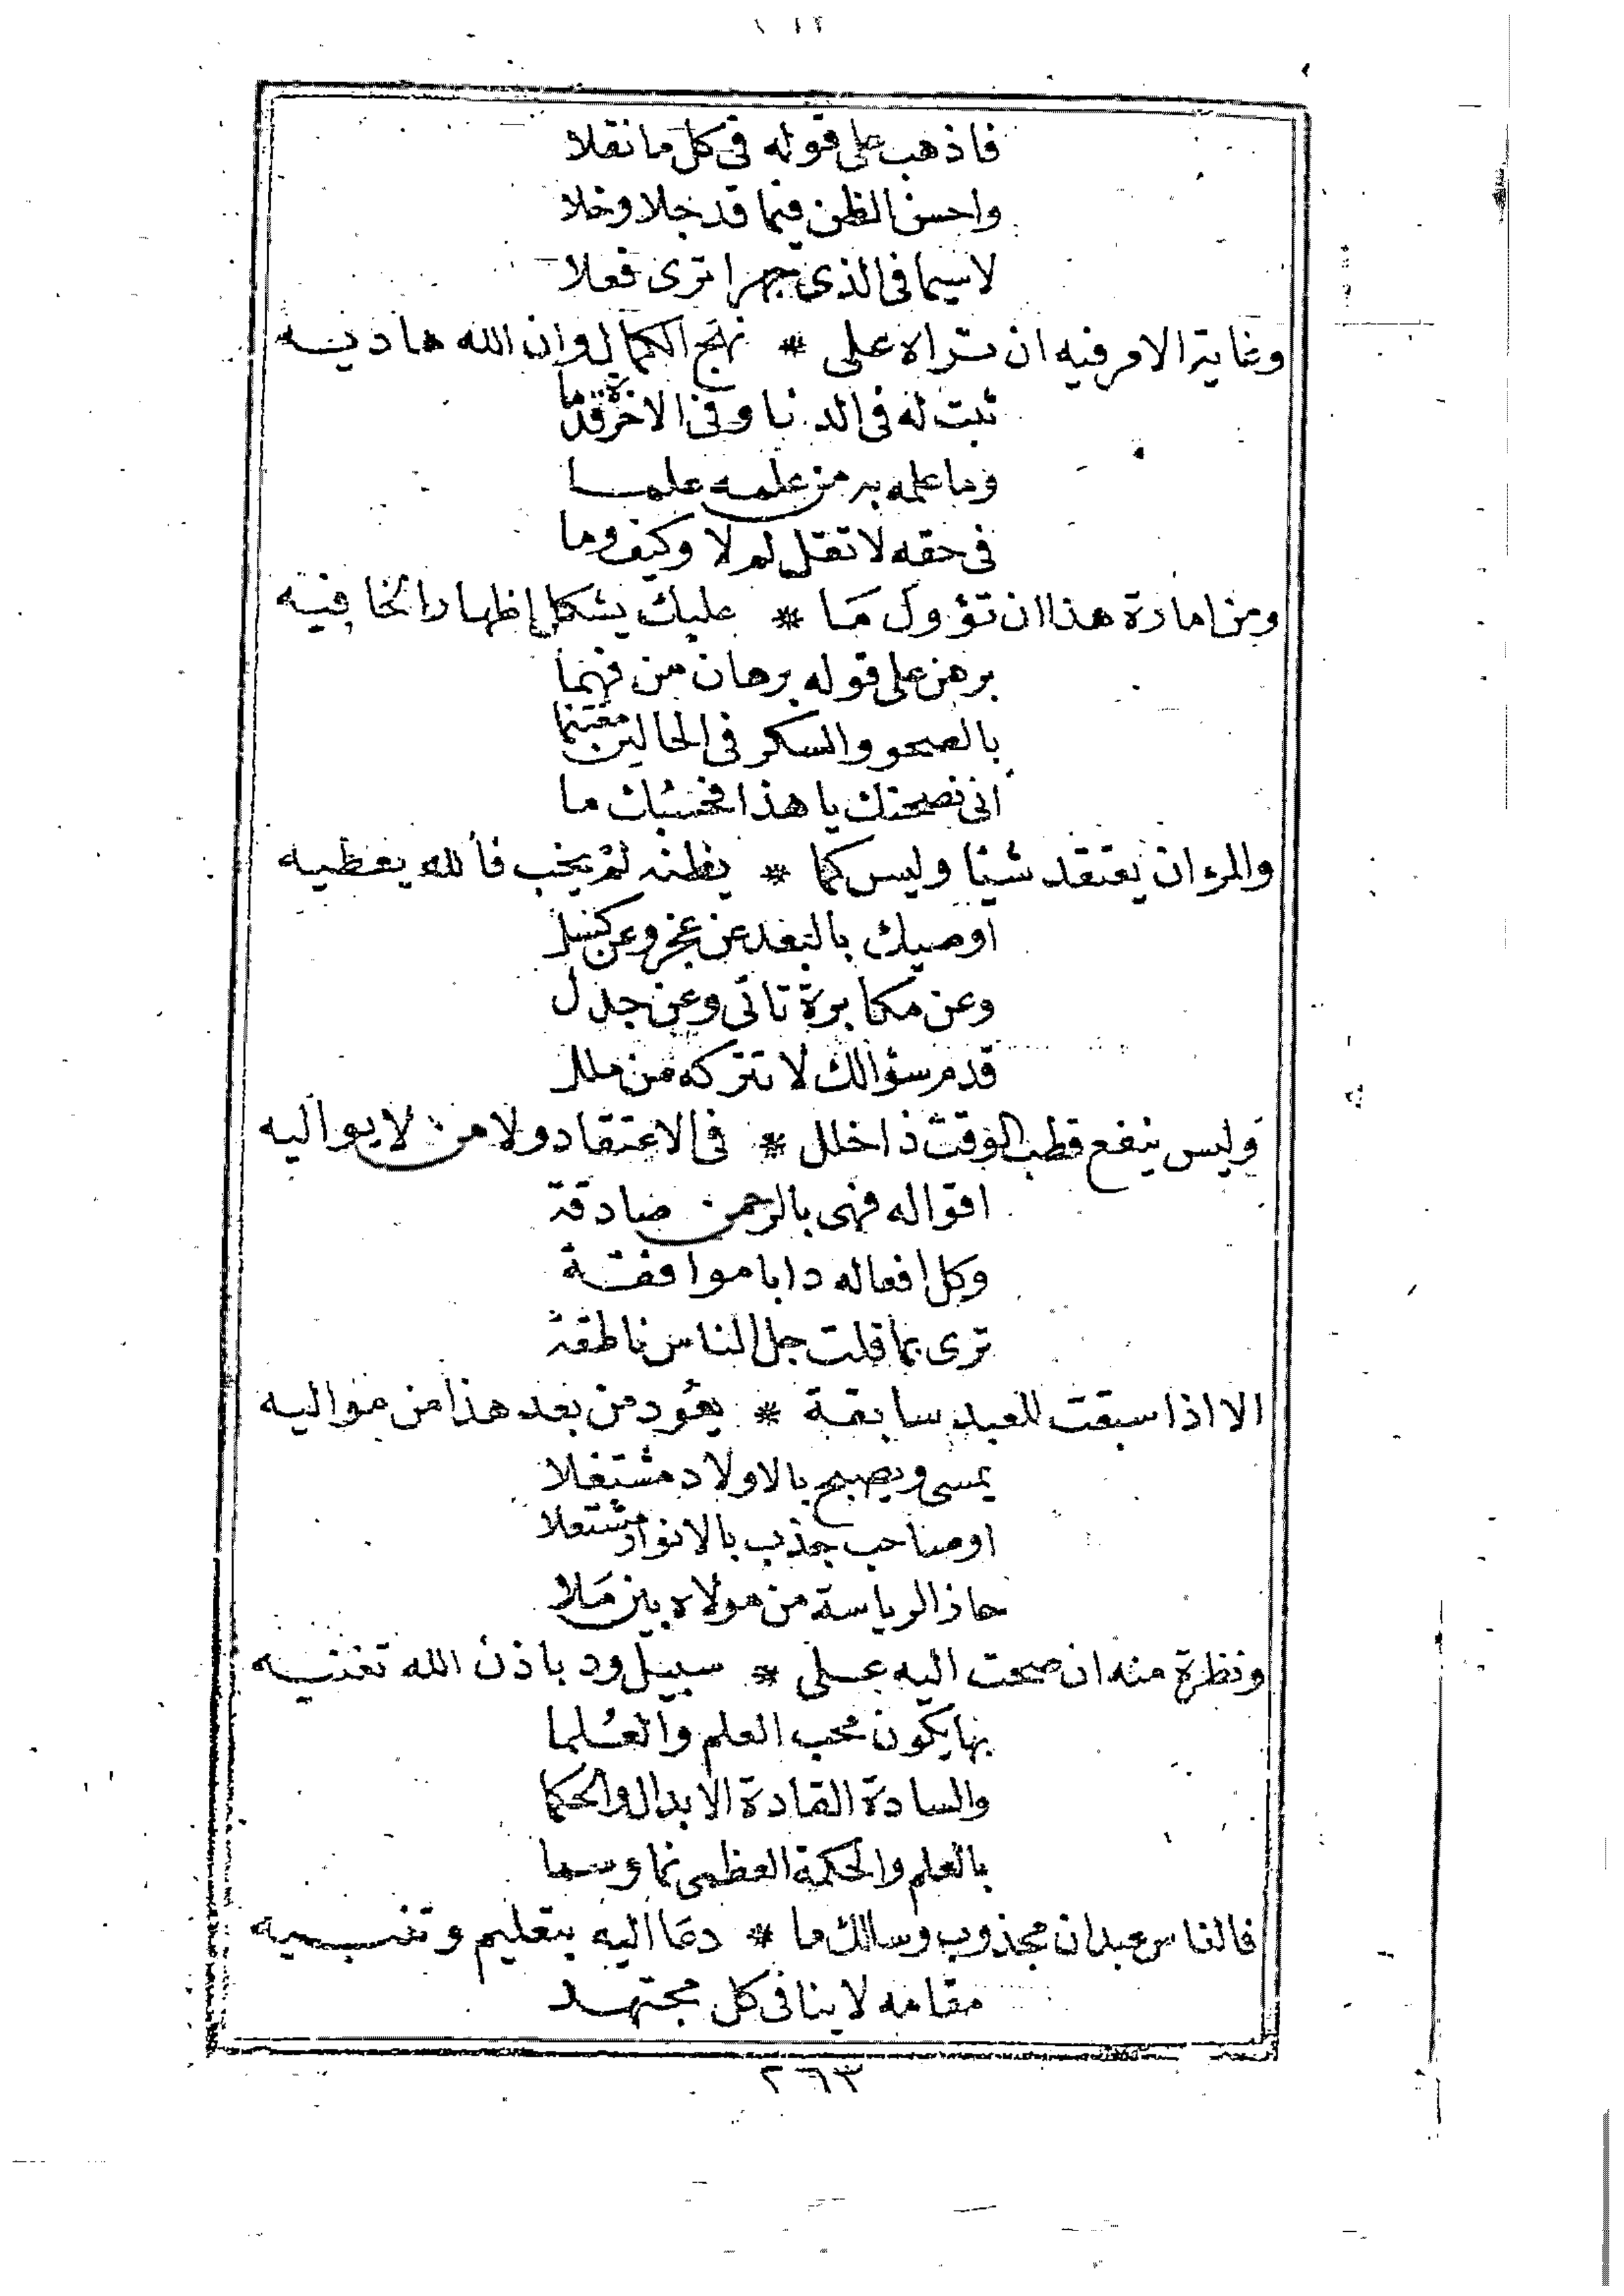 فاذهب على قوله فى كل ما نقلا
واحسن الظن فيما قد جلا وخلا
لاسيما فى الذى جهرا ترى فعلا
وغاية الامر فيه ان تراه على * نهج الكمال وان الله هاديه
ثبت له فى الدنيا وفى الاخرة قدما
وما علمه به من علمه علما
فى حقه لا تقل لم لا وكيف وما
ومن امارة هذا ان تؤول ما * عليك يشكل إظهارا لخافيه
برهن على قوله برهان من فهما
بالصحو والسكر فى الحالين مغتنما
انى نصحتك يا هذا فحسبك ما
والمرء ان يعتقد شيئا وليس كما * يظنه لم يخب فالله يعطيه
اوصيك بالبعد عن عجز وعن كسل
وعن مكابرة تاتى وعن جدل
قدم سؤالك لا تتركه من ملل
وليس ينفع قطب الوقت ذا خلل * فى الاعتقاد ولا من لا يواليه
اقواله فهى بالرحمن صادقة
وكل افعاله دابا موافقة
ترى بما قلت جل الناس ناطقة
الا اذا سبقت للعبد سابقة * يعود من بعد هذا من مواليه
يمسى ويصبح بالاولاد مشتغلا
اوصاحب جذب بالانوار مشتعلا
حاز الرياسة من مولاه بين ملا
ونظرة منه ان صحت اليه على * سبيل ود باذن الله تغنيه
بها يكون محب العلم والعلما
والسادة القادة الابدال والحكما
بالعلم والحكمة العظمى نما وسما
فالناس عبدان مجذوب وسالك ما * دعا اليه بتعليم وتنبيه
مقامه لا ينافى كل مجتهد
٢٦٣